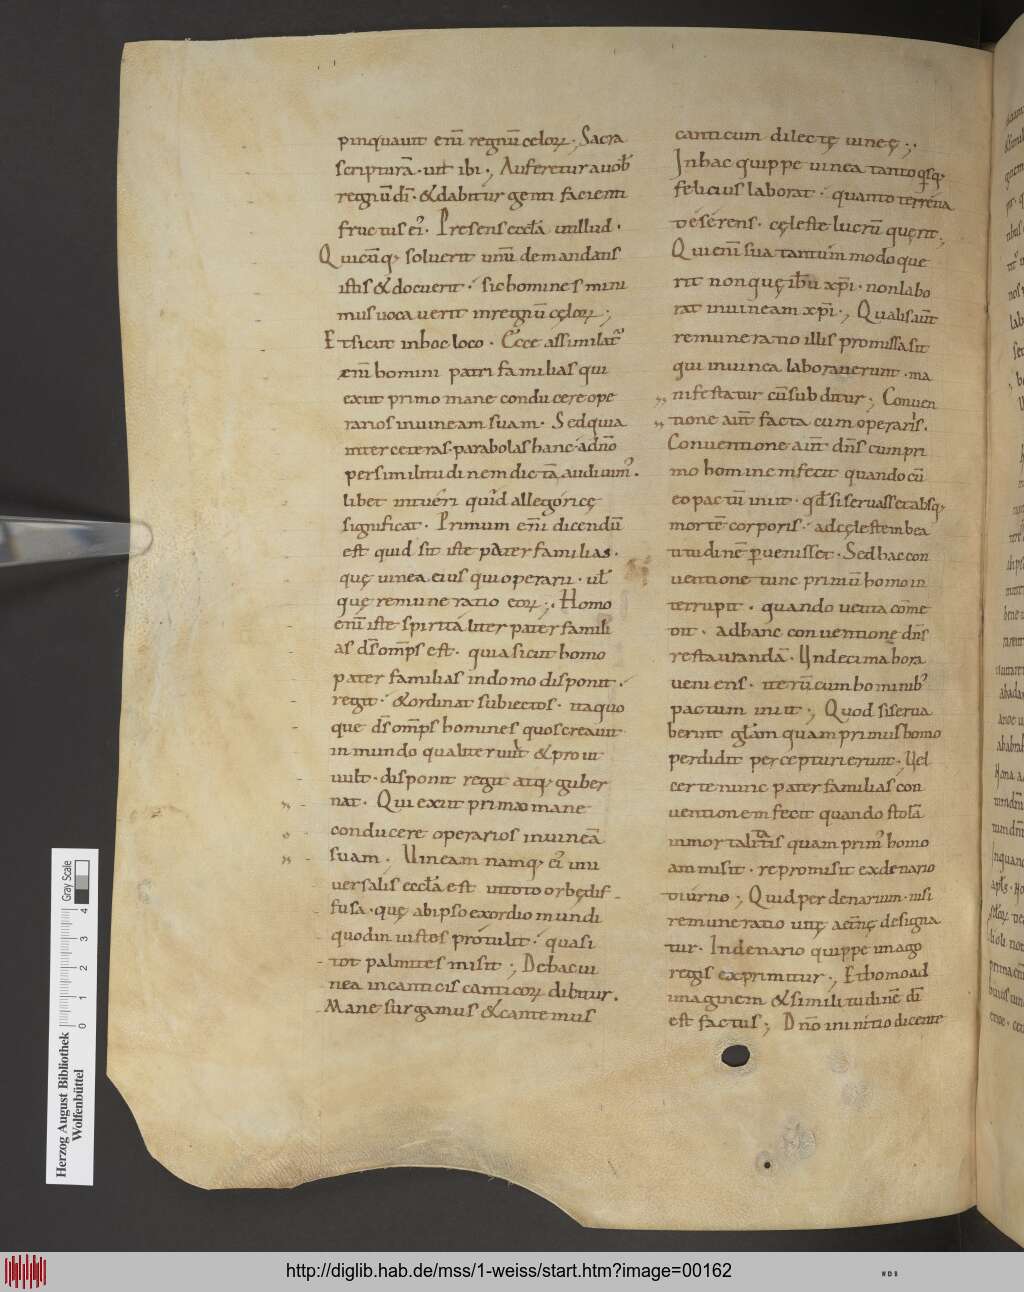 pinquauit eni᷃ regnu᷃ celoꝝ; Sacra
scriptura᷃. ut ibi; Auferetur a uob̅
regnu᷃ di᷃. & dabitur genti facienti
fructus ei᷒. Presens eccl̅a ut illud.
Quicu᷃q; soluerit unu᷃ de mandatis
istis & docuerit. sic homines mini
mus uocauerit in regnu᷃ cęloꝝ;
Et sicut in hoc loco. Ecce assimilat᷒
eni᷃ homini patri familias qui
exiit primo mane conducere ope
rarios in uineam suam. Sed quia
inter ceteras parabolas hanc ad dn̅o
per similitudinem dicta᷃ audiuim᷒.
libet intueri quid allegoricę
significat. Primum eni᷃ dicendu᷃
est quid sit iste pater familias.
quę uinea eius qui operarii. ul̅
quę remuneratio eoꝝ;. Homo
eni᷃ iste spiritaliter pater famili
as ds̅ omp̅s est. quia sicut homo
pater familias in domo disponit.
regit. & ordinat subiectos. ita quo
que ds̅ omp̅s homines quos creauit
in mundo qualiter uult & prout
uult. disponit regit atq; guber
nat. Qui exiit primo mane
conducere operarios in uinea᷃
suam. Uineam namq; ei᷒ uni
uersalis eccl̅a est in toto orbe dif
fusa. quę ab ipso exordio mundi
quod in iustos protulit. quasi
tot palmites misit; De hac ui
nea in canticis canticoꝝ dicitur.
Mane surgamus & cantemus
canticum dilectę uineę;.
In hac quippe uinea tanto qsq;
felicius laborat. quanto terrena
deserens. cęleste lucru᷃ querit;
Qui eni᷃ sua tantum modo que
rit non quę ih̅u xp̅i. non labo
rat in uineam xp̅i; Qualis aut̅
remuneratio illis promissa sit
qui in uinea laborauerunt. ma
nifestatur cu᷃ subditur; Conuen
tione aut̅ facta cum operariis.
Conuentionem aut̅ dn̅s cum pri
mo homine fecit quando cu᷃
eo pactu᷃ iniit. qd̅ si seruasset absq;
morte᷃ corporis. ad cęlestem bea
titudine᷃ ꝑuenisset. Sed hac con
uentione tunc primu᷃ homo in
terrupit. quando uetita com̅e
dit. Ad hanc conuentione dn̅s
restauranda᷃. Undecima hora
ueniens. iteru᷃ cum hominib᷒
pactum iniit; Quod si serua
berint gl̅am quam primus homo
perdidit percepturi erunt. Uel
certe nunc pater familias con
uentionem fecit quando stola᷃
inmortalitatis quam prim᷒ homo
ammisit. repromisit ex denario
diurno; Quid per denarium. nisi
remuneratio uitę aet̅nę designa
tur. In denario quippe imago
regis exprimitur; Et homo ad
imaginem & similitudine᷃ di᷃
est factus; Dn̅o in initio dicente
Herzog August Bibliothek
Wolfenbüttel
Gray Scale
0 1 2 3 4
http://diglib.hab.de/mss/1-weiss/start.htm?image=00162